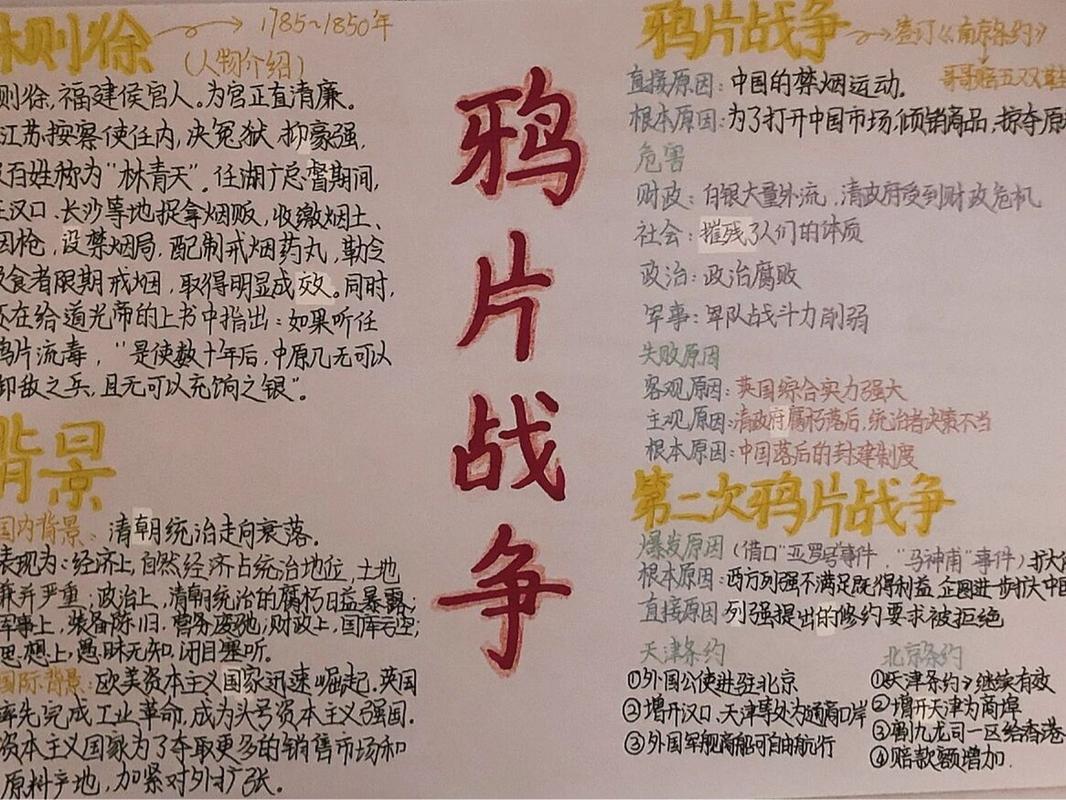 林则徐 1785~1850年
(人物介绍)
则徐,福建侯官人。为官正直清廉。
江苏按察使任内,决冤狱,抑豪强,
百姓称为"林青天"。任湖广总督期间,
汉口、长沙等地捉拿烟贩,收缴烟土、
烟枪,设禁烟局,配制戒烟药丸,勒令
吸食者限期戒烟,取得明显成效。同时,
还在给道光帝的上书中指出:如果听任
鸦片流毒,"是使数十年后,中原几无可以
御敌之兵,且无可以充饷之银"。
背景
国内背景:清朝统治走向衰落。
表现为:经济上,自然经济占统治地位,土地
兼并严重;政治上,清朝统治的腐朽日益暴露;
军事上,装备陈旧,营务废弛;财政上,国库亏空;
思想上,愚昧无知,闭目塞听。
国际背景:欧美资本主义国家迅速崛起.英国
率先完成工业革命,成为头号资本主义强国.
资本主义国家为了夺取更多的销售市场和
原料产地,加紧对外扩张。
鸦片战争
鸦片战争 签订《南京条约》
哥哥赔五双鞋
直接原因:中国的禁烟运动.
根本原因:为了打开中国市场,倾销商品,掠夺原
危害
财政:白银大量外流,清政府受到财政危机
社会:摧残了人们的体质
政治:政治腐败
军事:军队战斗力削弱
失败原因
客观原因:英国综合实力强大
主观原因:清政府腐朽落后,统治者决策不当
根本原因:中国落后的封建制度
第二次鸦片战争
爆发原因(借口"亚罗号"事件,"马神甫"事件)扩大
根本原因:西方列强不满足既得利益,企图进一步扩大中国
直接原因:列强提出的修约要求被拒绝
天津条约
①外国公使进驻北京
②增开汉口、天津等处为通商口岸
③外国军舰商船可自由航行
北京条约
①《天津条约》继续有效
②增开天津为商埠
③割九龙司一区给香港
④赔款额增加.